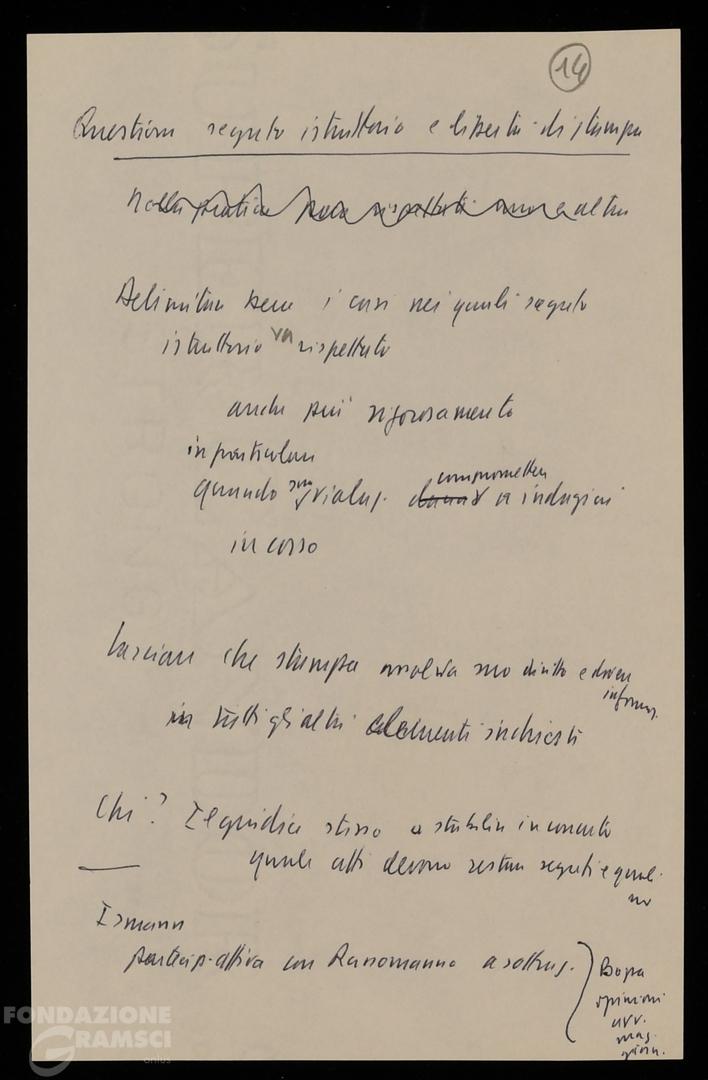 14
Question segreto istruttorio e libertà di stampa
Nella pratica poco rispettati altri
Delimitare bene i casi nei quali segreto
istruttorio va rispettato
anche più rigorosamente
in particolare
compromettere
quando indagini
in corso
lasciare che stampa assolva suo diritto e dovere
inform.
in tutti gli altri elementi inchiesti
Chi? Il giudice stesso a stabilire in concreto
quali atti devono restare segreti e quali
no
Ismann
particip. attiva con Russomanno a sottrag.
opinioni
avv.
mag.
giorn.
FONDAZIONE
GRAMSCI
onlus